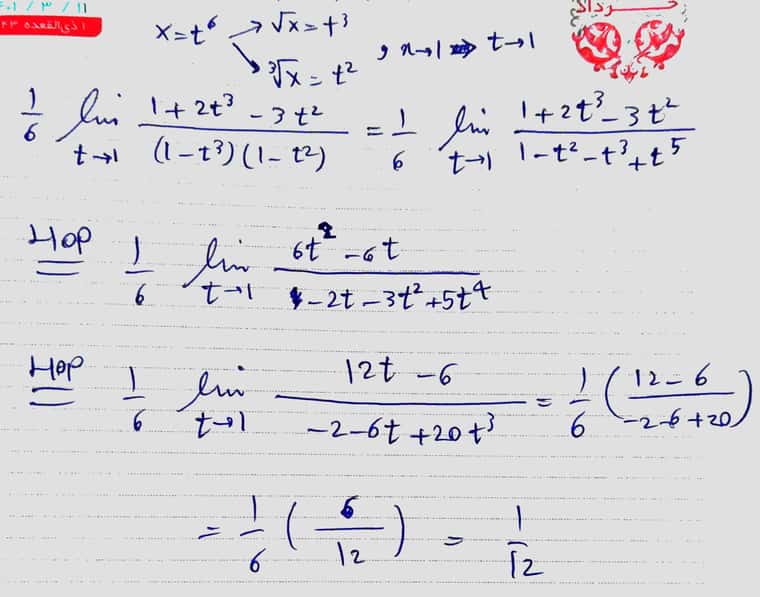 ۱۱ / ۳ / ۱۴۰۱
x=t⁶ → √x = t³
→ ∛x = t² , x→1 ⇒ t→1
1/6 lim_{t→1} (1+2t³-3t²)/((1-t³)(1-t²)) = 1/6 lim_{t→1} (1+2t³-3t²)/(1-t²-t³+t⁵)
Hop = 1/6 lim_{t→1} (6t²-6t)/(-2t-3t²+5t⁴)
Hop = 1/6 lim_{t→1} (12t-6)/(-2-6t+20t³) = 1/6 ((12-6)/(-2-6+20))
= 1/6 (6/12) = 1/12